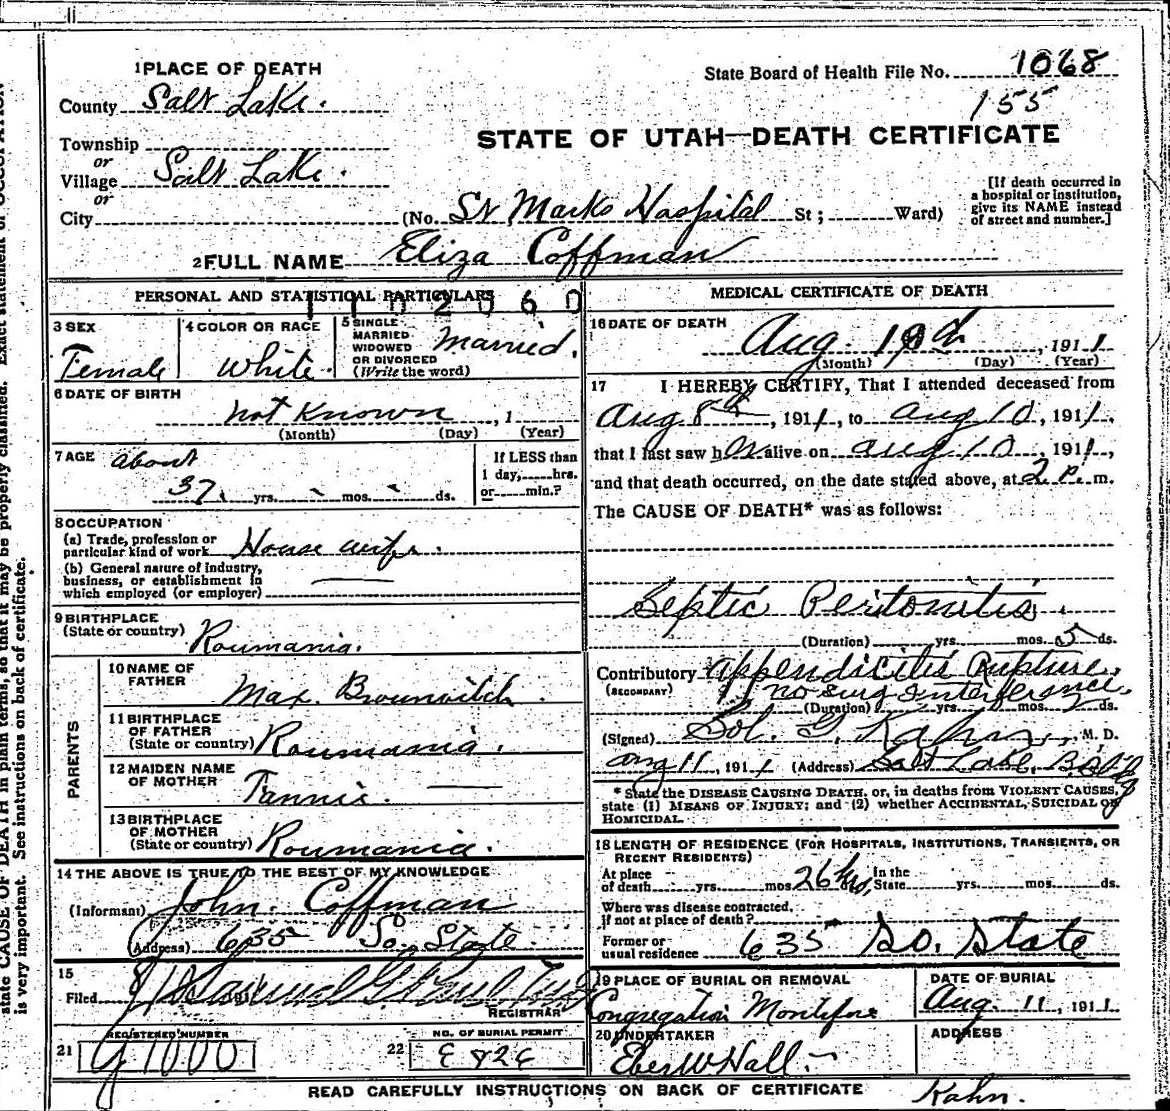 1 PLACE OF DEATH
State Board of Health File No. 1068
155
County Salt Lake.
STATE OF UTAH—DEATH CERTIFICATE
Township
or
Village Salt Lake.
or
City (No. St Marks Hospital St; Ward)
[If death occurred in
a hospital or institution,
give its NAME instead
of street and number.]
2 FULL NAME Eliza Coffman
PERSONAL AND STATISTICAL PARTICULARS
1102060
3 SEX
Female
4 COLOR OR RACE
White.
5 SINGLE
MARRIED
WIDOWED
OR DIVORCED
(Write the word)
Married.
6 DATE OF BIRTH
not Known, 1
(Month) (Day) (Year)
7 AGE about
37. yrs. mos. ds.
If LESS than
1 day, hrs.
or min.?
8 OCCUPATION
(a) Trade, profession or
particular kind of work House wife.
(b) General nature of industry,
business, or establishment in
which employed (or employer)
9 BIRTHPLACE
(State or country) Roumania.
PARENTS
10 NAME OF
FATHER Max.
11 BIRTHPLACE
OF FATHER
(State or country) Roumania.
12 MAIDEN NAME
OF MOTHER Fannie.
13 BIRTHPLACE
OF MOTHER
(State or country) Roumania.
14 THE ABOVE IS TRUE TO THE BEST OF MY KNOWLEDGE
(Informant) John. Coffman
(Address) 635 So. State.
15
Filed 191
REGISTRAR
REGISTERED NUMBER
21 G1000
NO. OF BURIAL PERMIT
22 E826
MEDICAL CERTIFICATE OF DEATH
16 DATE OF DEATH
Aug. 10th, 1911
(Month) (Day) (Year)
17 I HEREBY CERTIFY, That I attended deceased from
Aug 8th, 1911, to Aug 10, 1911,
that I last saw her alive on Aug 10, 1911,
and that death occurred, on the date stated above, at 2 P. m.
The CAUSE OF DEATH* was as follows:
Septic Peritonitis.
(Duration) yrs. mos. 5 ds.
Contributory Appendicitis Rupture.
(SECONDARY) no surg interference.
(Duration) yrs. mos. 2 ds.
(Signed) Sol. G. Kahn, M. D.
Aug 11, 1911 (Address) Salt Lake,
* State the DISEASE CAUSING DEATH. or, in deaths from VIOLENT CAUSES,
state (1) MEANS OF INJURY; and (2) whether ACCIDENTAL, SUICIDAL OR
HOMICIDAL.
18 LENGTH OF RESIDENCE (FOR HOSPITALS, INSTITUTIONS, TRANSIENTS, OR
RECENT RESIDENTS)
At place
of death yrs. mos. 26 hrs. In the
State yrs. mos. ds.
Where was disease contracted.
if not at place of death?
Former or
usual residence 635 So. State
19 PLACE OF BURIAL OR REMOVAL
Congregation Montifore
DATE OF BURIAL
Aug. 11, 1911
20 UNDERTAKER
Eber W Hall
ADDRESS
READ CAREFULLY INSTRUCTIONS ON BACK OF CERTIFICATE
Kahn.
state CAUSE OF DEATH in plain terms, so that it may be properly classified. Exact statement of OCCUPATION
is very important. See instructions on back of certificate.